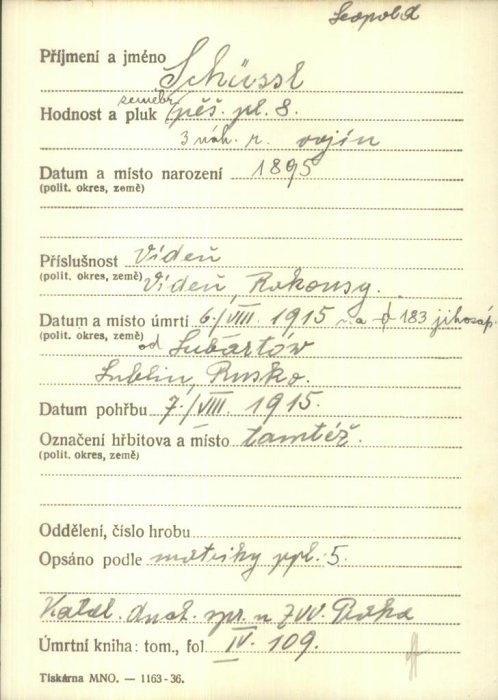 Leopold
Příjmení a jméno Schüssl
Hodnost a pluk zeměbr. pěš. pl. 8.
3 náh. r. vojín
Datum a místo narození 1895
(polit. okres, země)
Příslušnost Vídeň
(polit. okres, země) Vídeň, Rakousy.
Datum a místo úmrtí 6./VIII. 1915 183 jihozáp.
(polit. okres, země) od Lubartów
Lublin, Rusko.
Datum pohřbu 7./VIII. 1915.
Označení hřbitova a místo tamtéž.
(polit. okres, země)
Oddělení, číslo hrobu
Opsáno podle matriky ppl. 5.
Katol. duch. spr. u ZVV. Praha
Úmrtní kniha: tom., fol IV. 109.
Tiskárna MNO. — 1163-36.